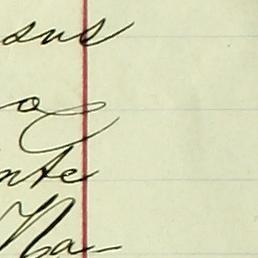 sus
ra
nte
Na-